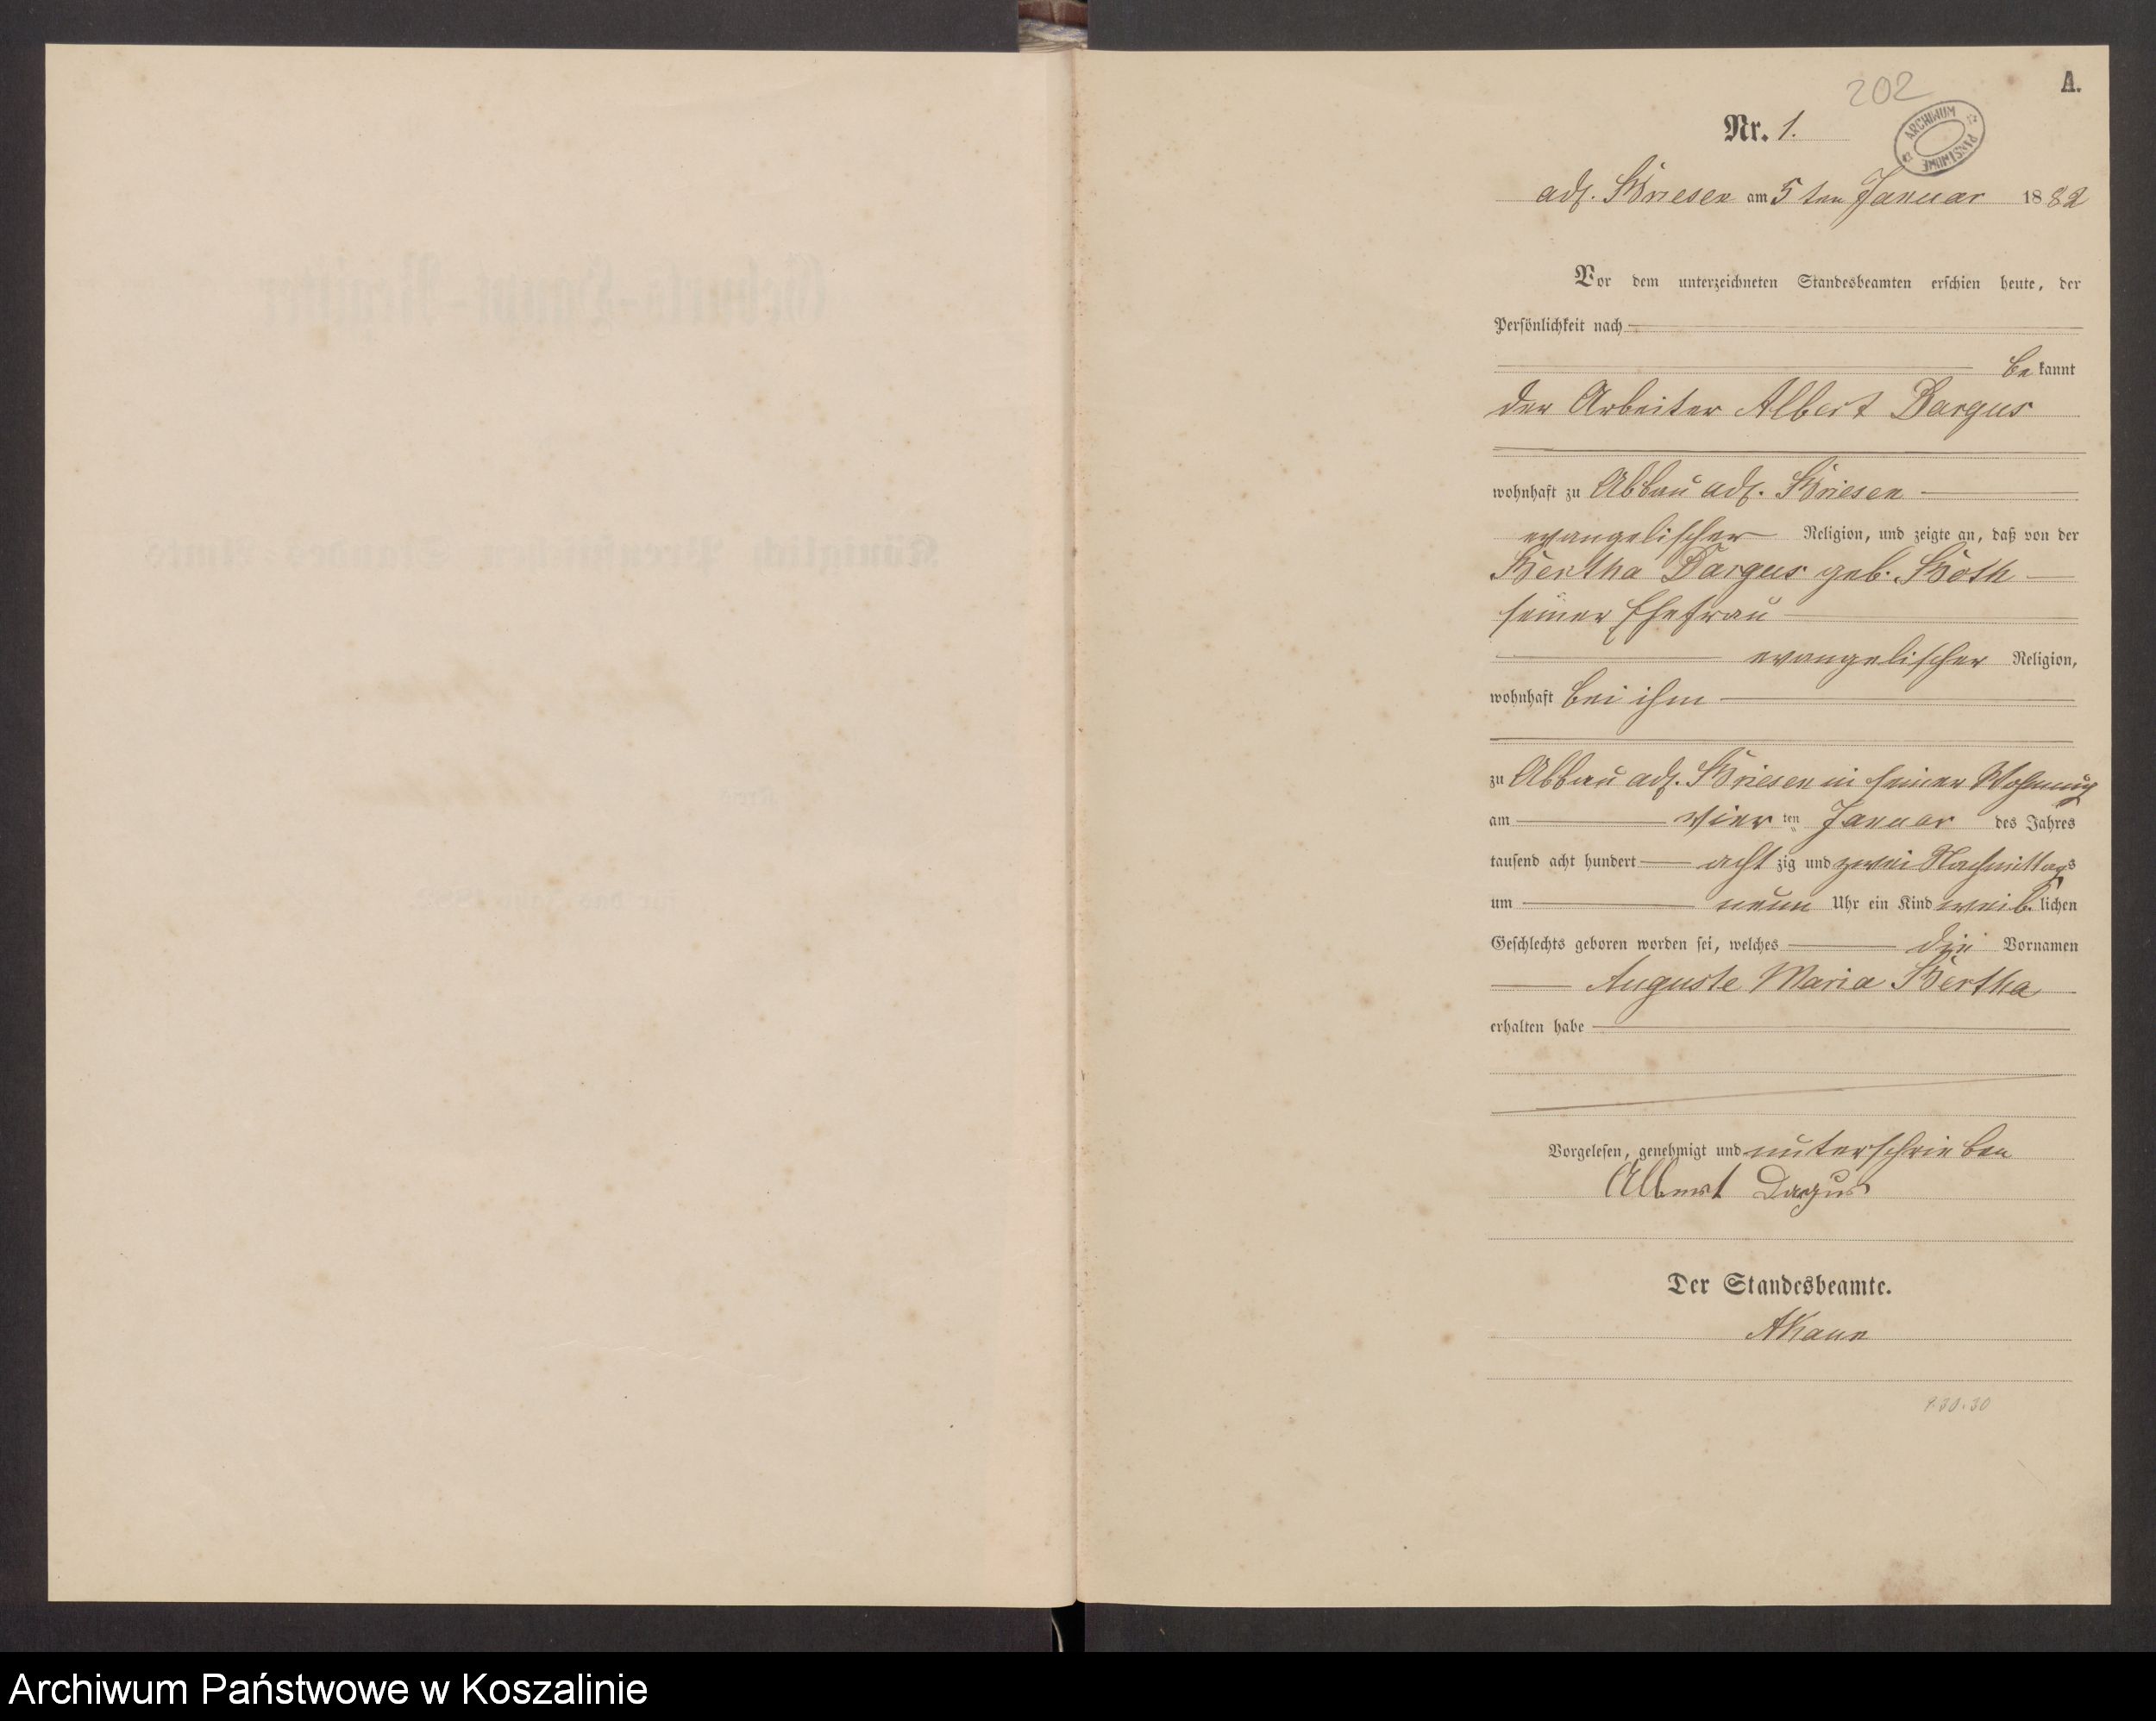 A.
202
Nr. 1.
ARCHIWUM PAŃSTWOWE
adl. Briesen am 5ten Januar 1882
Vor dem unterzeichneten Standesbeamten erschien heute, der
Persönlichkeit nach
bekannt
der Arbeiter Albert Dargus
wohnhaft zu Abbau adl. Briesen
evangelischer Religion, und zeigte an, daß von der
Bertha Dargus geb. Both
seiner Ehefrau
evangelischer Religion,
wohnhaft bei ihm
zu Abbau adl. Briesen in seiner Wohnung
am vierten Januar des Jahres
tausend acht hundert achtzig und zwei Nachmittags
um neun Uhr ein Kind weiblichen
Geschlechts geboren worden sei, welches die Vornamen
Auguste Maria Bertha
erhalten habe
Vorgelesen, genehmigt und unterschrieben
Albert Dargus
Der Standesbeamte.
Archiwum Państwowe w Koszalinie